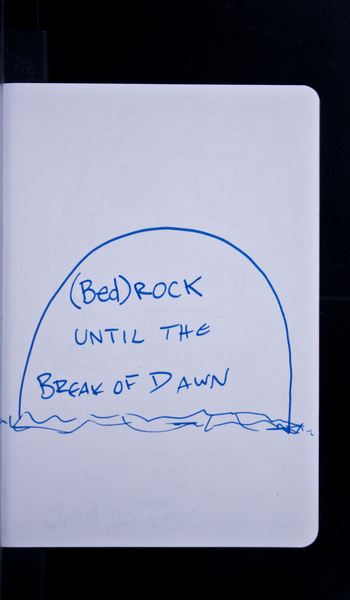 (Bed)ROCK
UNTIL THE
BREAK OF DAWN